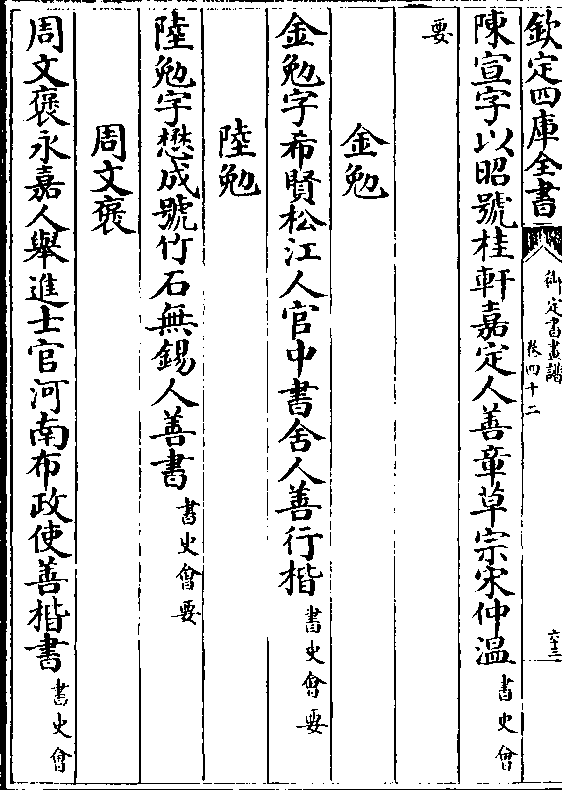 欽定四庫全書
御定書畫譜
卷四十二
六十三
陳宣字以昭號桂軒嘉定人善章草宗宋仲温書史會
要
金勉
金勉字希賢松江人官中書舍人善行楷書史會要
陸勉
陸勉字懋成號竹石無錫人善書書史會要
周文褒
周文褒永嘉人舉進士官河南布政使善楷書書史會